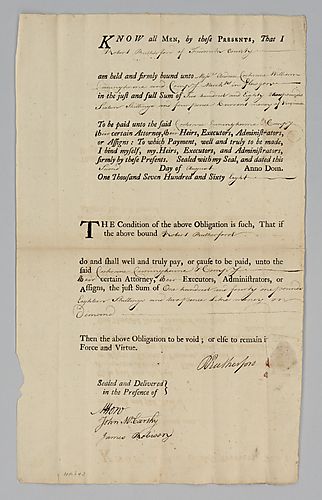 KNOW all MEN, by these PRESENTS, That I
Robert Rutherford of Frederick County
am held and firmly bound unto Messrs Cochrane William
Cunninghame and Comy of
in the just and full Sum of two hundred and Eighty three pounds
Sixteen Shillings and four pence Current money of Virginia
To be paid unto the said Cochrane Cunninghame & Compy
their certain Attorney, their Heirs, Executors, Administrators,
or Assigns: To which Payment, well and truly to be made,
I bind myself, my Heirs, Executors, and Administrators,
firmly by these Presents. Sealed with my Seal, and dated this
Day of August Anno Dom.
One Thousand Seven Hundred and Sixty Eight
THE Condition of the above Obligation is such, That if
the above bound Robert Rutherford
do and shall well and truly pay, or cause to be paid, unto the
said Cochrane Cunninghame & Compy
their certain Attorney, their Executors, Administrators, or
Assigns, the just Sum of One hundred and forty one pounds
Eighteen Shillings and two pence like money on
Demand
Then the above Obligation to be void; or else to remain i
Force and Virtue.
R Rutherford
Sealed and Delivered
in the Presence of
John McCarthy
James